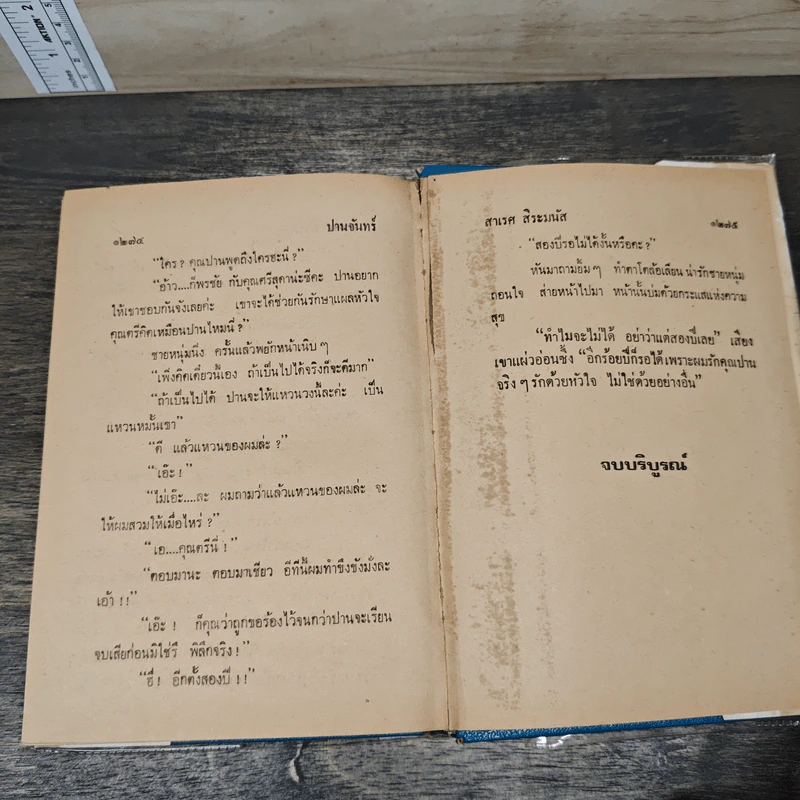 ๑๒๗๔ ปานจันทร์
“ใคร? คุณปานพูดถึงใครฮะนี่?”
“อ้าว....ก็พรชัย กับคุณศรีสุดาน่ะซีคะ ปานอยาก
ให้เขาชอบกันจังเลยค่ะ เขาจะได้ช่วยกันรักษาแผลหัวใจ
คุณตรีคิดเหมือนปานไหมนี่?”
ชายหนุ่มนิ่ง ครั้นแล้วพยักหน้าเนิบๆ
“เพิ่งคิดเดี๋ยวนี้เอง ถ้าเป็นไปได้จริงก็จะดีมาก”
“ถ้าเป็นไปได้ ปานจะให้แหวนวงนี้ละค่ะ เป็น
แหวนหมั้นเขา”
“ดี แล้วแหวนของผมล่ะ?”
“เอ๊ะ!”
“ไม่เอ๊ะ....ละ ผมถามว่าแล้วแหวนของผมล่ะ จะ
ให้ผมสวมให้เมื่อไหร่?”
“เอ....คุณตรีนี่!”
“ตอบมานะ ตอบมาเชียว อีทีนี้ผมทำขึงขังมั่งละ
เอ้า!!”
“เอ๊ะ! ก็คุณว่าถูกขอร้องไว้จนกว่าปานจะเรียน
จบเสียก่อนมิใช่รึ พิลึกจริง!”
“ฮื่! อีกตั้งสองปี!!”
สาเรศ สิระมนัส ๑๒๗๕
“สองปีรอไม่ได้งั้นหรือคะ?”
หันมาถามยิ้มๆ ทำตาโตล้อเลียน น่ารักชายหนุ่ม
ถอนใจ ส่ายหน้าไปมา หน้านั้นบ่มด้วยกระแสแห่งความ
สุข
“ทำไมจะไม่ได้ อย่าว่าแต่สองปีเลย” เสียง
เขาแผ่วอ่อนซึ้ง “อีกร้อยปีก็รอได้เพราะผมรักคุณปาน
จริงๆ รักด้วยหัวใจ ไม่ใช่ด้วยอย่างอื่น”
จบบริบูรณ์
2
AKTION
inches
5
4
3
2
1